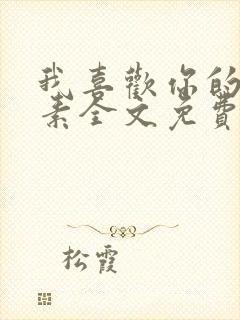 我喜歡你的
素全文免費
松霞